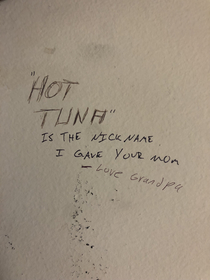 "HOT
TUNA"
IS THE NICKNAME
I GAVE YOUR MOM
– Love Grandpa